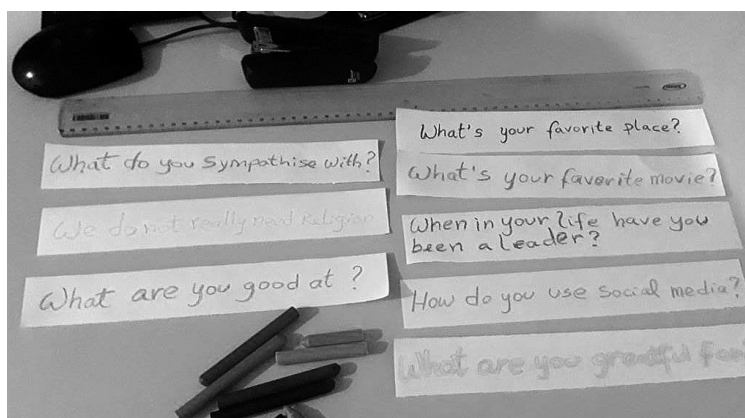 What do you sympathise with?
We do not really need Religion
What are you good at ?
What's your favorite place?
What's your favorite movie?
When in your life have you
been a leader?
How do you use social media?
What are you greatful for